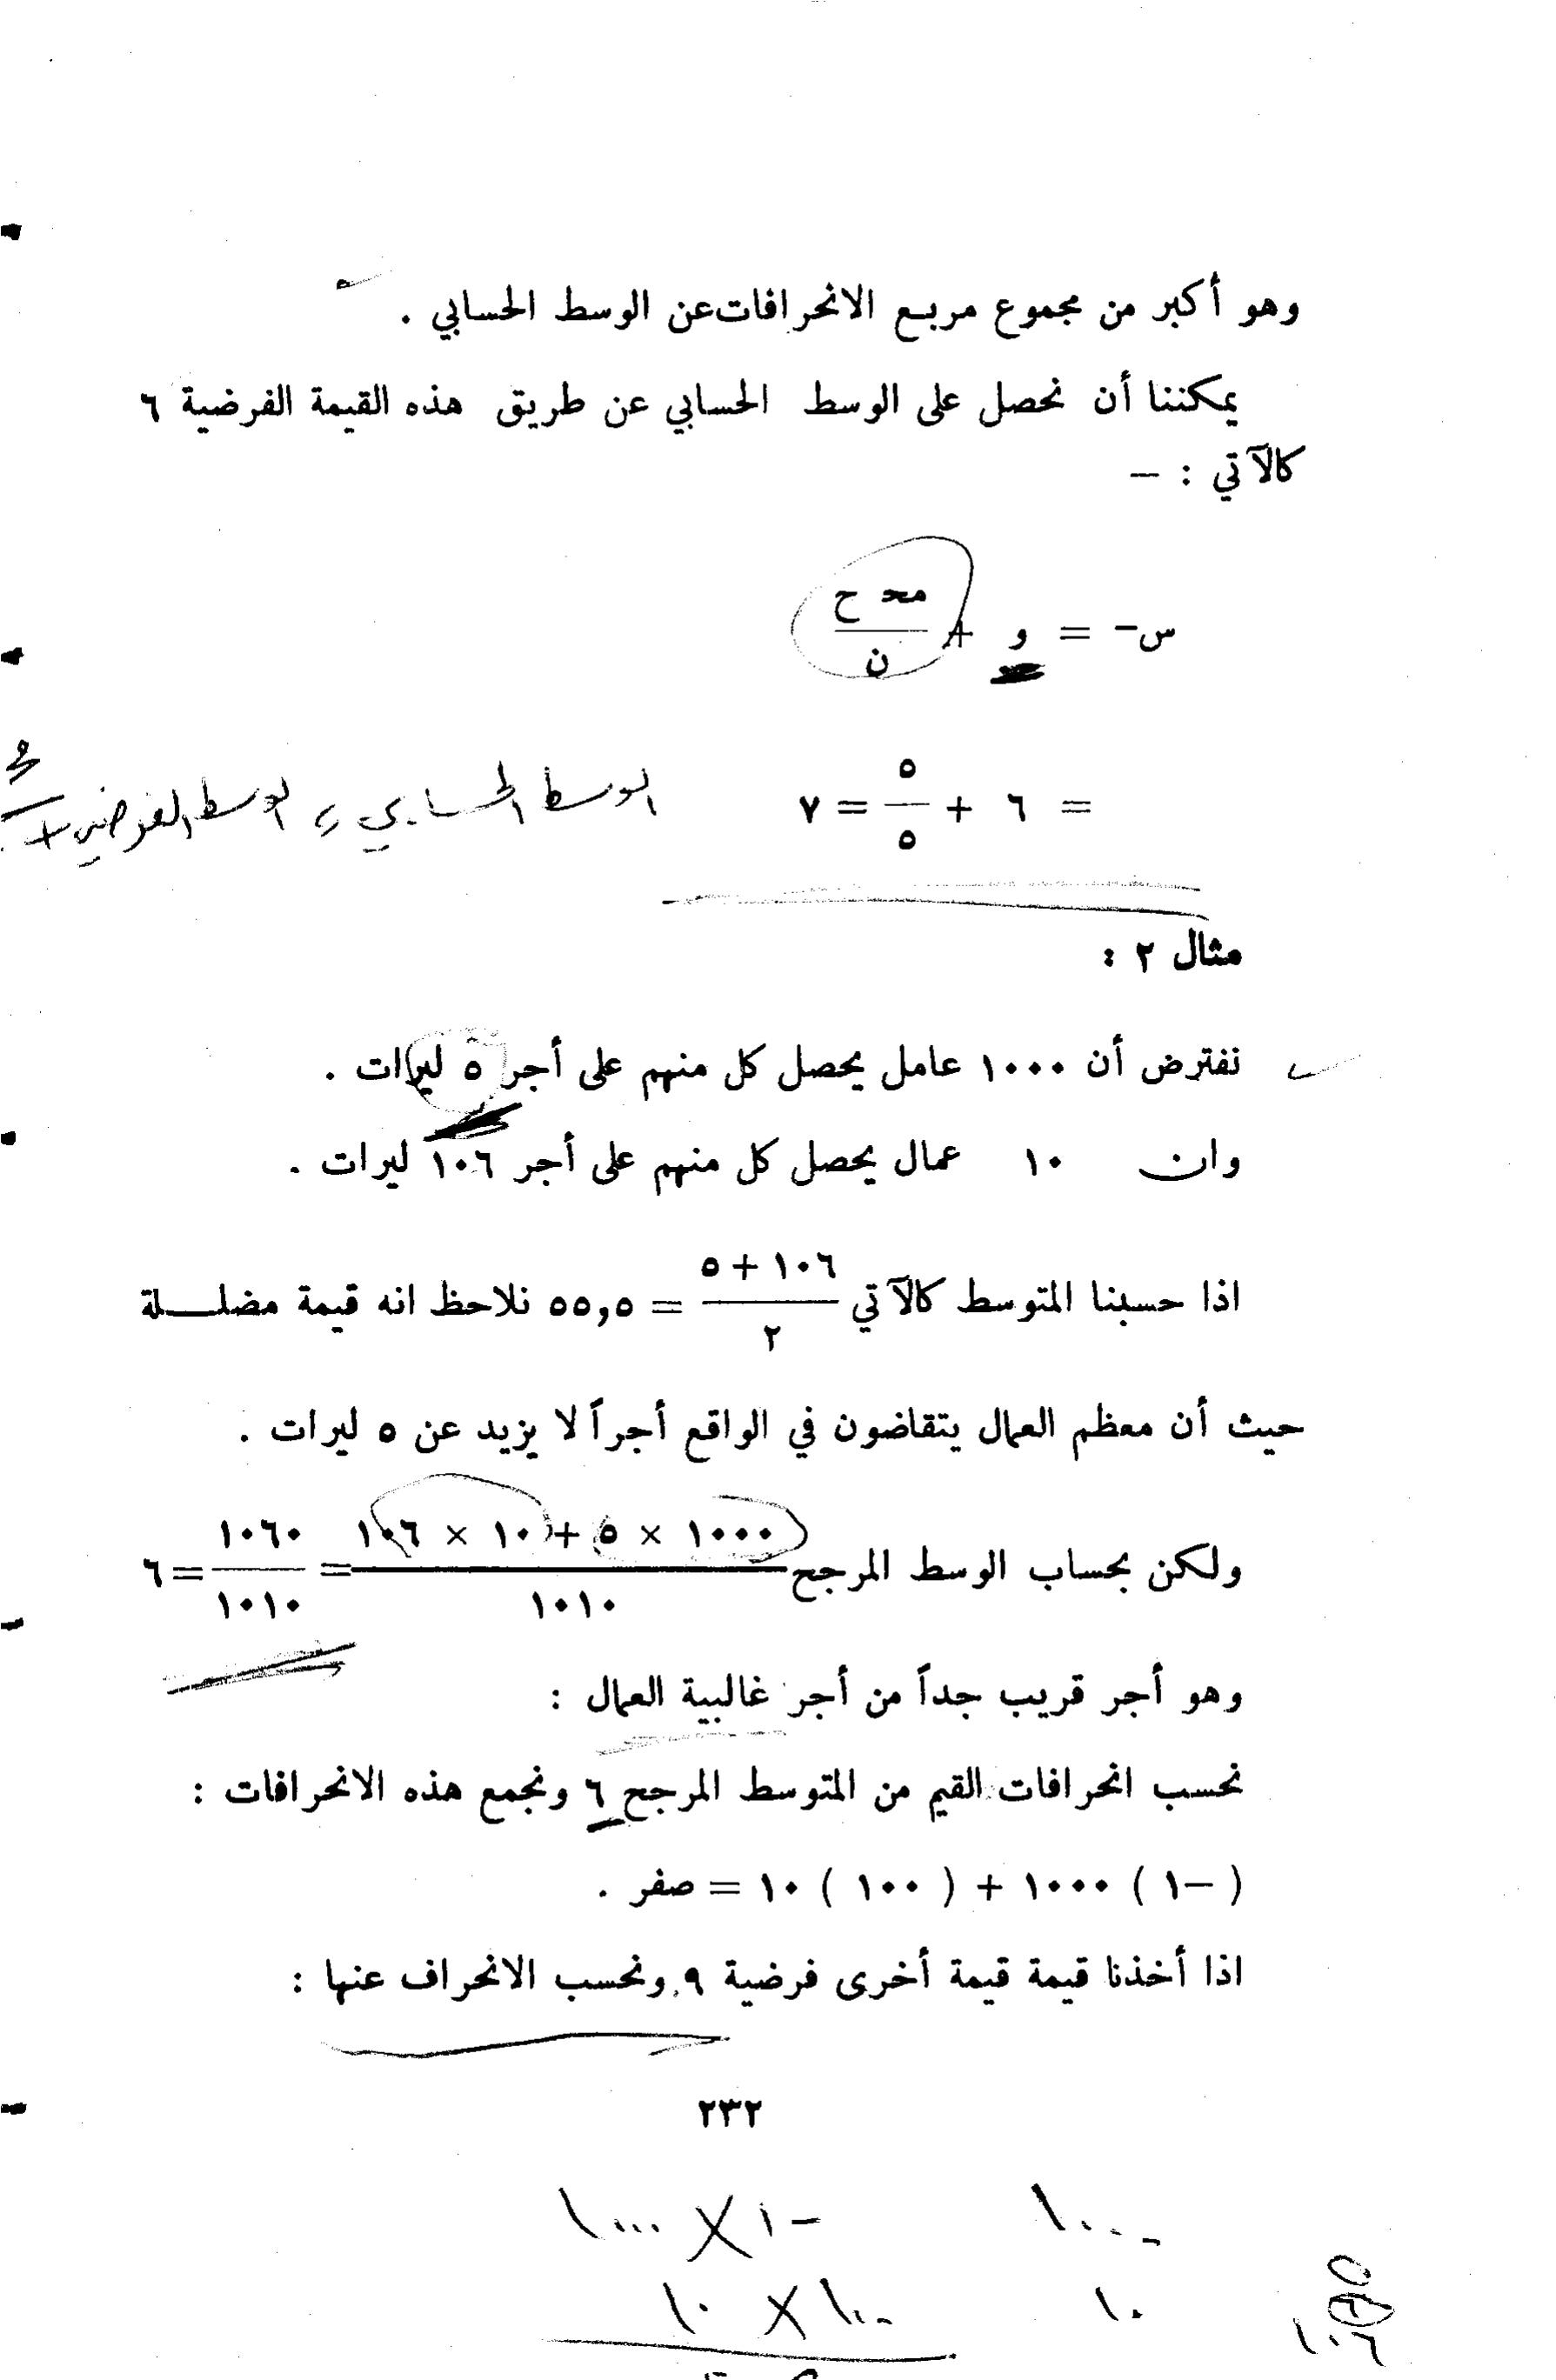 وهو أكبر من مجموع مربع الانحرافات عن الوسط الحسابي .
يمكننا أن نحصل على الوسط الحسابي عن طريق هذه القيمة الفرضية ٦
كالآتي : –
س– = و + محـ ح / ن
= ٦ + ٥ / ٥ = ٧
الوسط الحسابي = الوسط الفرضي +
مثال ٢ :
نفترض أن ١٠٠٠ عامل يحصل كل منهم على أجر ٥ ليرات .
وان ١٠ عمال يحصل كل منهم على أجر ١٠٦ ليرات .
اذا حسبنا المتوسط كالآتي ١٠٦ + ٥ / ٢ = ٥٥,٥ نلاحظ انه قيمة مضللة
حيث أن معظم العمال يتقاضون في الواقع أجراً لا يزيد عن ٥ ليرات .
ولكن بحساب الوسط المرجح ١٠٠٠ × ٥ + ١٠ × ١٠٦ / ١٠١٠ = ١٠٦٠ / ١٠١٠ = ٦
وهو أجر قريب جداً من أجر غالبية العمال :
نحسب انحرافات القيم من المتوسط المرجح ٦ ونجمع هذه الانحرافات :
( –١ ) ١٠٠٠ + ( ١٠٠ ) ١٠ = صفر .
اذا أخذنا قيمة قيمة أخرى فرضية ٩ ونحسب الانحراف عنها :
٢٣٢
١٠٠٠ –١ × ١٠٠٠
١٠ ١٠٠ × ١٠
١٠٦